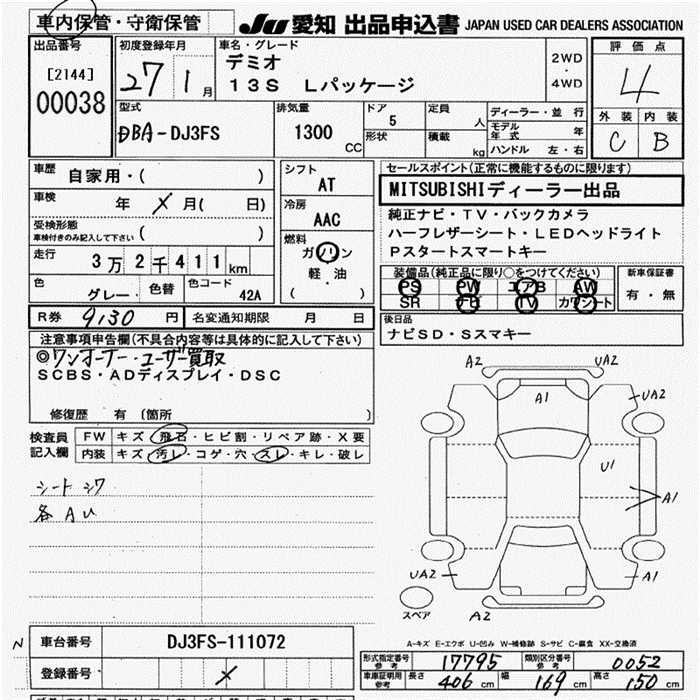 車内保管・守衛保管 JU 愛知 出品申込書 JAPAN USED CAR DEALERS ASSOCIATION
出品番号
[2144]
00038
初度登録年月
27 1月
車名・グレード
デミオ
13S Lパッケージ
2WD
・
4WD
評価点
4
外装 内装
C B
型式
DBA-DJ3FS
排気量
1300 CC
ドア 5
形状
定員 人
積載 kg
ディーラー・並行
モデル年式 年
ハンドル 左・右
車歴 自家用・( )
車検 年 X 月( 日)
受検形態
車検付きのみ記入して下さい ( )
走行 3万2千411km
色 グレー・ 色替 色コード 42A
シフト
AT
冷房
AAC
燃料
ガソリン
軽・油
( )
セールスポイント(正常に機能するものに限ります)
MITSUBISHIディーラー出品
純正ナビ・TV・バックカメラ
ハーフレザーシート・LEDヘッドライト
Pスタートスマートキー
装備品(純正品に限り○をつけてください)
PS PW エアB AW
SR ナビ TV カワシート
新車保証書
有・無
R券 9130 円 名変通知期限 月 日
後日品
ナビSD・Sスマキー
注意事項申告欄(不具合内容等は具体的に記入して下さい)
◎ワンオーナー・ユーザー買取
SCBS・ADディスプレイ・DSC
修復歴 有 (箇所 )
検査員記入欄
FW キズ・飛石・ヒビ割・リペア跡・X要
内装 キズ・汚レ・コゲ・穴・スレ・キレ・破レ
シート シワ
各 AU
A2 UA2
A1 UA2
U1
A1
UA2 A1
スペア A2
A-キズ E-エクボ U-凹み W-補修跡 S-サビ C-腐食 XX-交換済
N 車台番号 DJ3FS-111072
登録番号 X
形式指定番号 参考 17795 類別区分番号 参考 0052
車庫証明用 参考 長さ 406 cm 幅 169 cm 高さ 150 cm